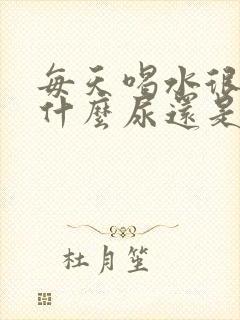 每天喝水很
什麼尿還是
杜月笙